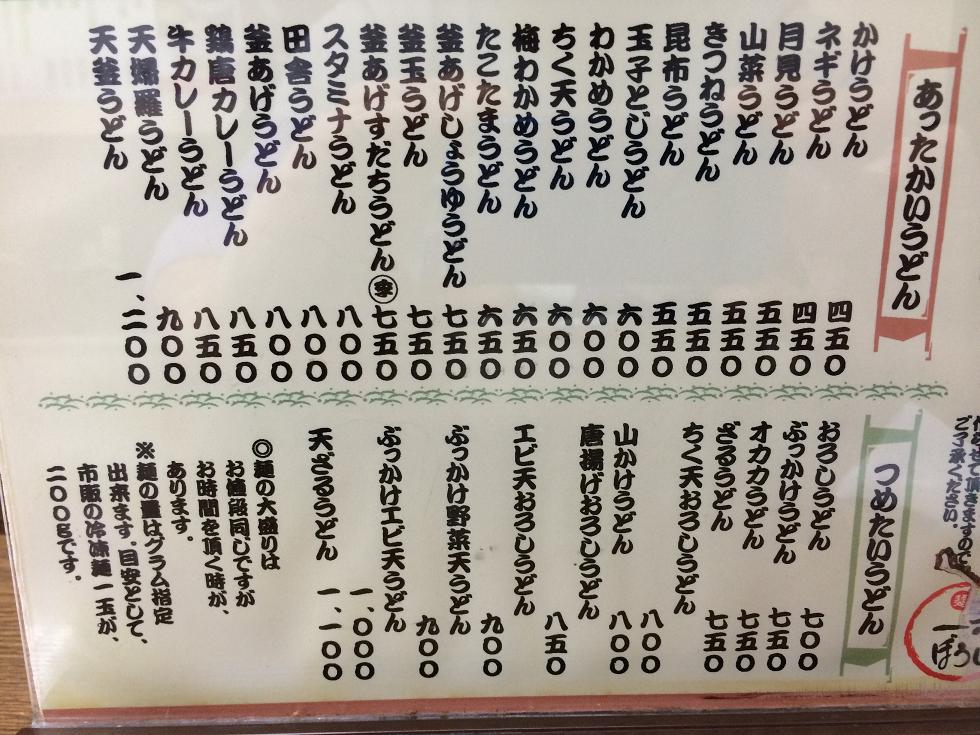 ご了承ください。
あったかいうどん
かけうどん 四五〇
ネギうどん 四五〇
月見うどん 五五〇
山菜うどん 五五〇
きつねうどん 五五〇
昆布うどん 五五〇
玉子とじうどん 六〇〇
わかめうどん 六〇〇
ちく天うどん 六〇〇
梅わかめうどん 六五〇
たこたまうどん 六五〇
釜あげしょうゆうどん 七五〇
釜玉うどん 七五〇
釜あげすだちうどん㊟季 七五〇
スタミナうどん 八〇〇
田舎うどん 八〇〇
釜あげうどん 八〇〇
鶏唐カレーうどん 八五〇
牛カレーうどん 八五〇
天婦羅うどん 九〇〇
天釜うどん 一、二〇〇
つめたいうどん
おろしうどん 七〇〇
ぶっかけうどん 七五〇
オカカうどん 七五〇
ざるうどん 七五〇
ちく天おろしうどん 八〇〇
山かけうどん 八〇〇
唐揚げおろしうどん 八五〇
エビ天おろしうどん 九〇〇
ぶっかけ野菜天うどん 九〇〇
ぶっかけエビ天うどん 一、〇〇〇
天ざるうどん 一、一〇〇
◎麺の大盛りは
お値段同じですが
お時間を頂く時が、
あります。
※麺の量はグラム指定
出来ます。目安として、
市販の冷凍麺一玉が、
二〇〇gです。